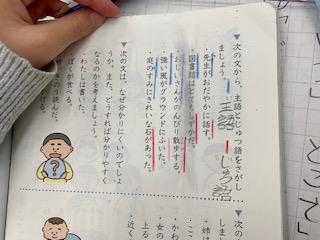 ▼次の文から、主語とじゅつ語をさがし
ましょう。 主語 じゅつ語
・先生がおだやかに話す。
・図書館はとてもしずかだ。
・おじいさんがのんびり散歩する。
・強い風がグラウンドにふいた。
・庭のすみにきれいな石があった。
▼次の文は、なぜ分かりにくいのでしょ
うか。また、どうすれば分かりやすく
なるのかを考えましょう。
・わたしは書いた。
・ぼくが食べる。
?
▼次の
しま
・姉は
・ここ
・かわ
・女の
上る
・近く